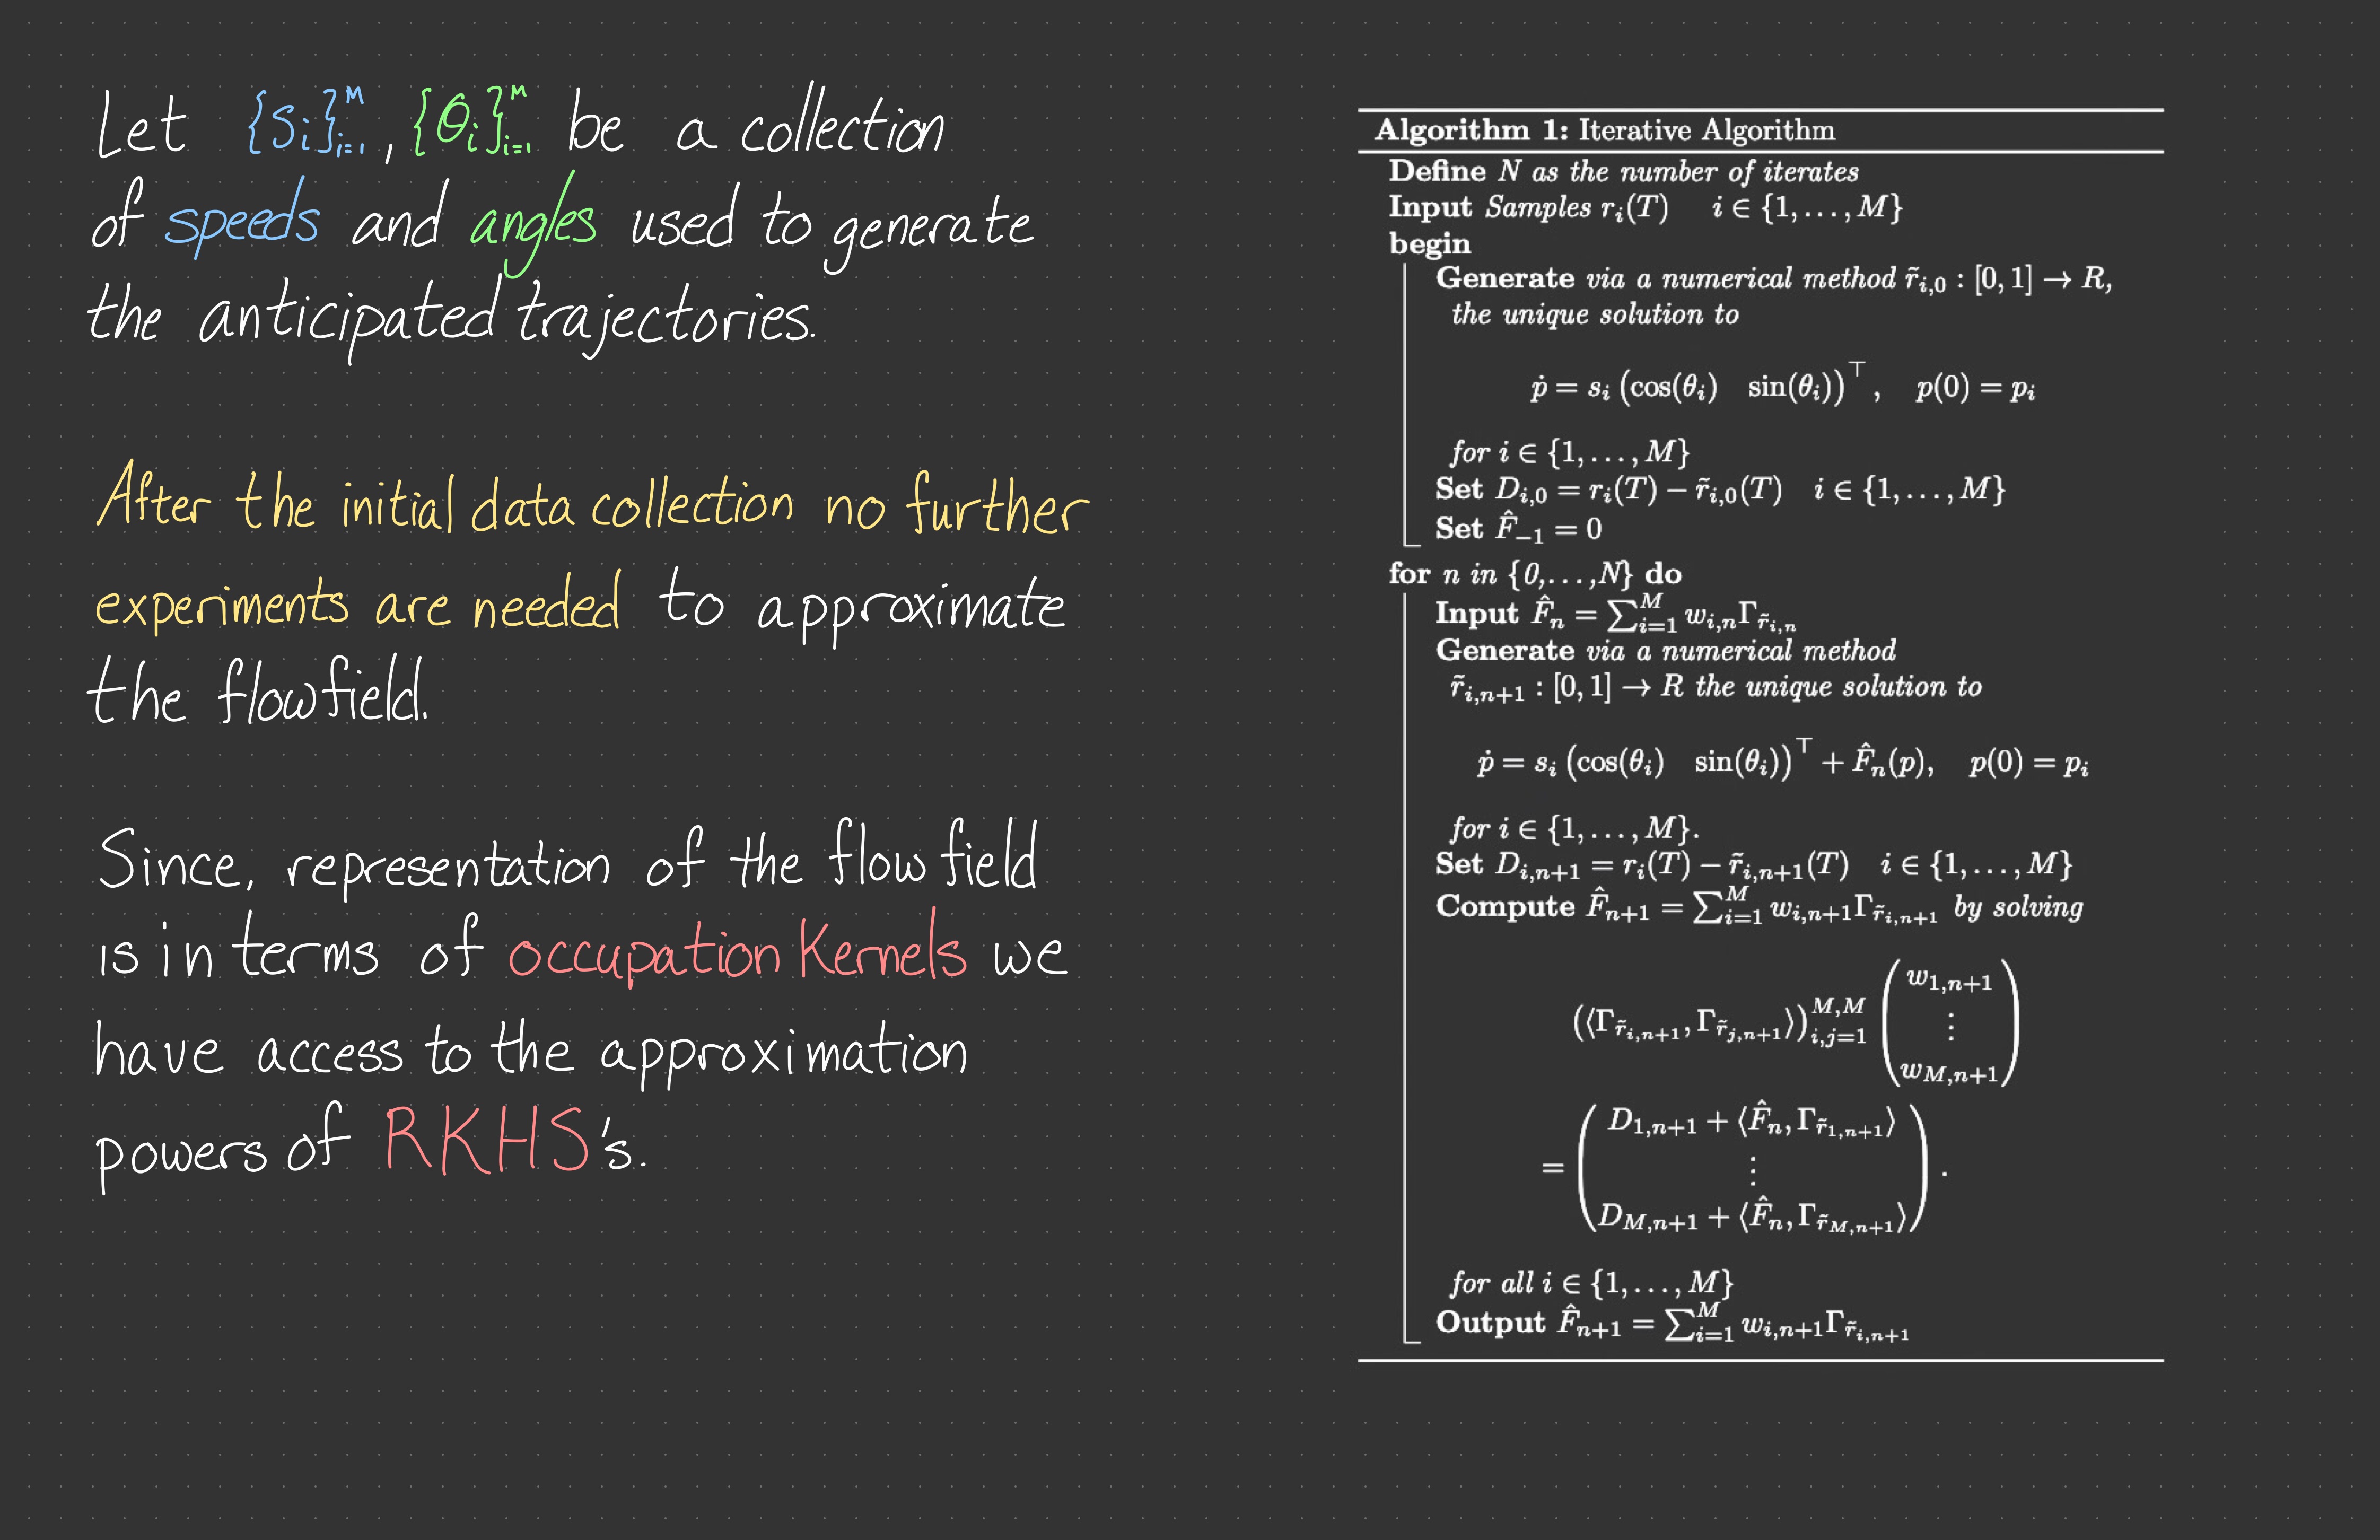 Let {sᵢ}ᵢ₌₁ᴹ, {θᵢ}ᵢ₌₁ᴹ be a collection
of speeds and angles used to generate
the anticipated trajectories.
After the initial data collection no further
experiments are needed to approximate
the flowfield.
Since, representation of the flow field
is in terms of occupation Kernels we
have access to the approximation
powers of RKHS's.
Algorithm 1: Iterative Algorithm
Define N as the number of iterates
Input Samples rᵢ(T) i ∈ {1, …, M}
begin
Generate via a numerical method r̃_{i,0} : [0, 1] → R,
the unique solution to
ṗ = sᵢ (cos(θᵢ) sin(θᵢ))^⊤, p(0) = pᵢ
for i ∈ {1, …, M}
Set D_{i,0} = rᵢ(T) − r̃_{i,0}(T) i ∈ {1, …, M}
Set F̂_{−1} = 0
for n in {0,…,N} do
Input F̂_n = ∑_{i=1}^{M} w_{i,n}Γ_{r̃_{i,n}}
Generate via a numerical method
r̃_{i,n+1} : [0, 1] → R the unique solution to
ṗ = sᵢ (cos(θᵢ) sin(θᵢ))^⊤ + F̂_n(p), p(0) = pᵢ
for i ∈ {1, …, M}.
Set D_{i,n+1} = rᵢ(T) − r̃_{i,n+1}(T) i ∈ {1, …, M}
Compute F̂_{n+1} = ∑_{i=1}^{M} w_{i,n+1}Γ_{r̃_{i,n+1}} by solving
(⟨Γ_{r̃_{i,n+1}}, Γ_{r̃_{j,n+1}}⟩)_{i,j=1}^{M,M} (w_{1,n+1} ⋮ w_{M,n+1})
= (D_{1,n+1} + ⟨F̂_n, Γ_{r̃_{1,n+1}}⟩ ⋮ D_{M,n+1} + ⟨F̂_n, Γ_{r̃_{M,n+1}}⟩).
for all i ∈ {1, …, M}
Output F̂_{n+1} = ∑_{i=1}^{M} w_{i,n+1}Γ_{r̃_{i,n+1}}